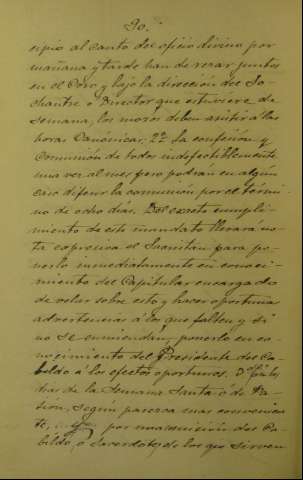 90.
cipio al canto del oficio divino por
mañana y tarde han de rezar juntos
en el Coro y bajo la dirección del So-
chantre o Director que estuviere de
semana, los mozos deben asistir a las
horas Canónicas; 2º La confesión y
Comunión de todos indefectiblemente
una vez al mes pero podrán en algún
caso diferir la comunión por el térmi-
no de ocho días. Del exacto cumpli-
miento de este mandato llevará no-
ta expresiva el Sacristán para po-
nerlo inmediatamente en conoci-
miento del Capitular encargado
de velar sobre esto y hacer oportunas
advertencias á los que falten y si
no se enmiendan, ponerlo en co-
nocimiento del Presidente del Ca-
bildo á los efectos oportunos. 3º
dias de la Semana Santa ó de Pa-
sión, según parezca mas convenien-
te, por una comisión del Ca-
bildo, ó sacerdotes de los que sirven